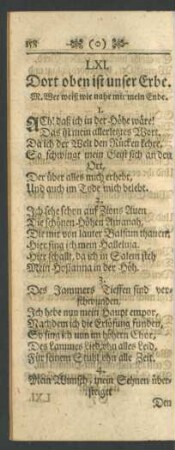 158 ( o )
LXI.
Dort oben ist unser Erbe.
M. Wer weiß wie nahe mir mein Ende.
1.
ACh! daß ich in der Höhe wäre!
Das ist mein allerletztes Wort,
Da ich der Welt den Rücken kehre,
So schwingt mein Geist sich an den
Ort,
Der über alles mich erhebt,
Und auch im Tode mich belebt.
2.
Ich sehe schon auf Zions Auen
Die schönen Höhen Amanah,
Die mit von lauter Balsam thauen,
Hier sing ich mein Halleluja.
Hier schallt, da ich in Salem steh
Mein Hosianna in der Höh.
3.
Des Jammers Tieffen sind ver-
schwunden.
Ich hebe nun mein Haupt empor,
Nachdem ich die Erlösung funden,
So sing ich nun im höhern Chor,
Des Lammes Lied, ohn alles Leid,
Für seinem Stuhl ohn alle Zeit.
4.
Mein Wunsch, mein Sehnen über-
steiget
LXI. Den